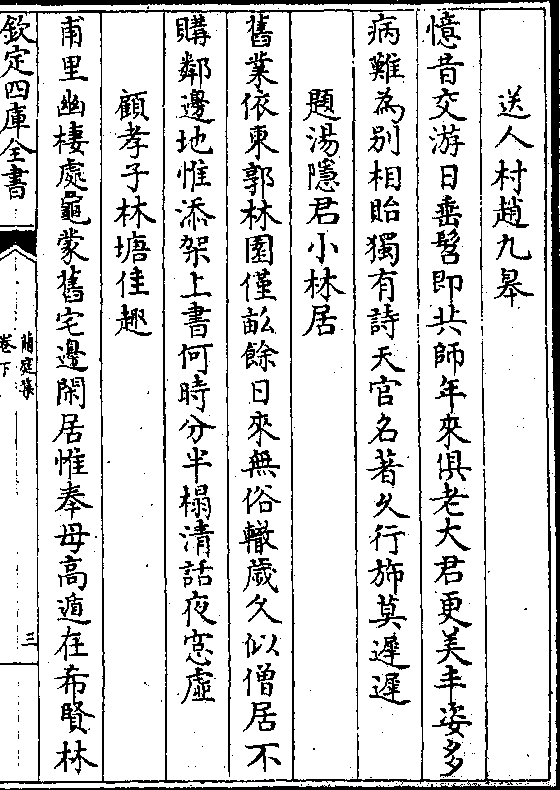 送人村趙九皋
憶昔交游日垂髫即共師年來俱老大君更美丰姿多
病難為别相貽獨有詩天官名著久行斾莫遲遲
題湯隱君小林居
舊業依東郭林園僅畝餘日來無俗轍歲久似僧居不
購鄰邊地惟添架上書何時分半榻清話夜窓虛
顧孝子林塘佳趣
甫里幽棲處龜蒙舊宅邊閑居惟奉母高遁在希賢林
欽定四庫全書
蘭庭集
卷下
三